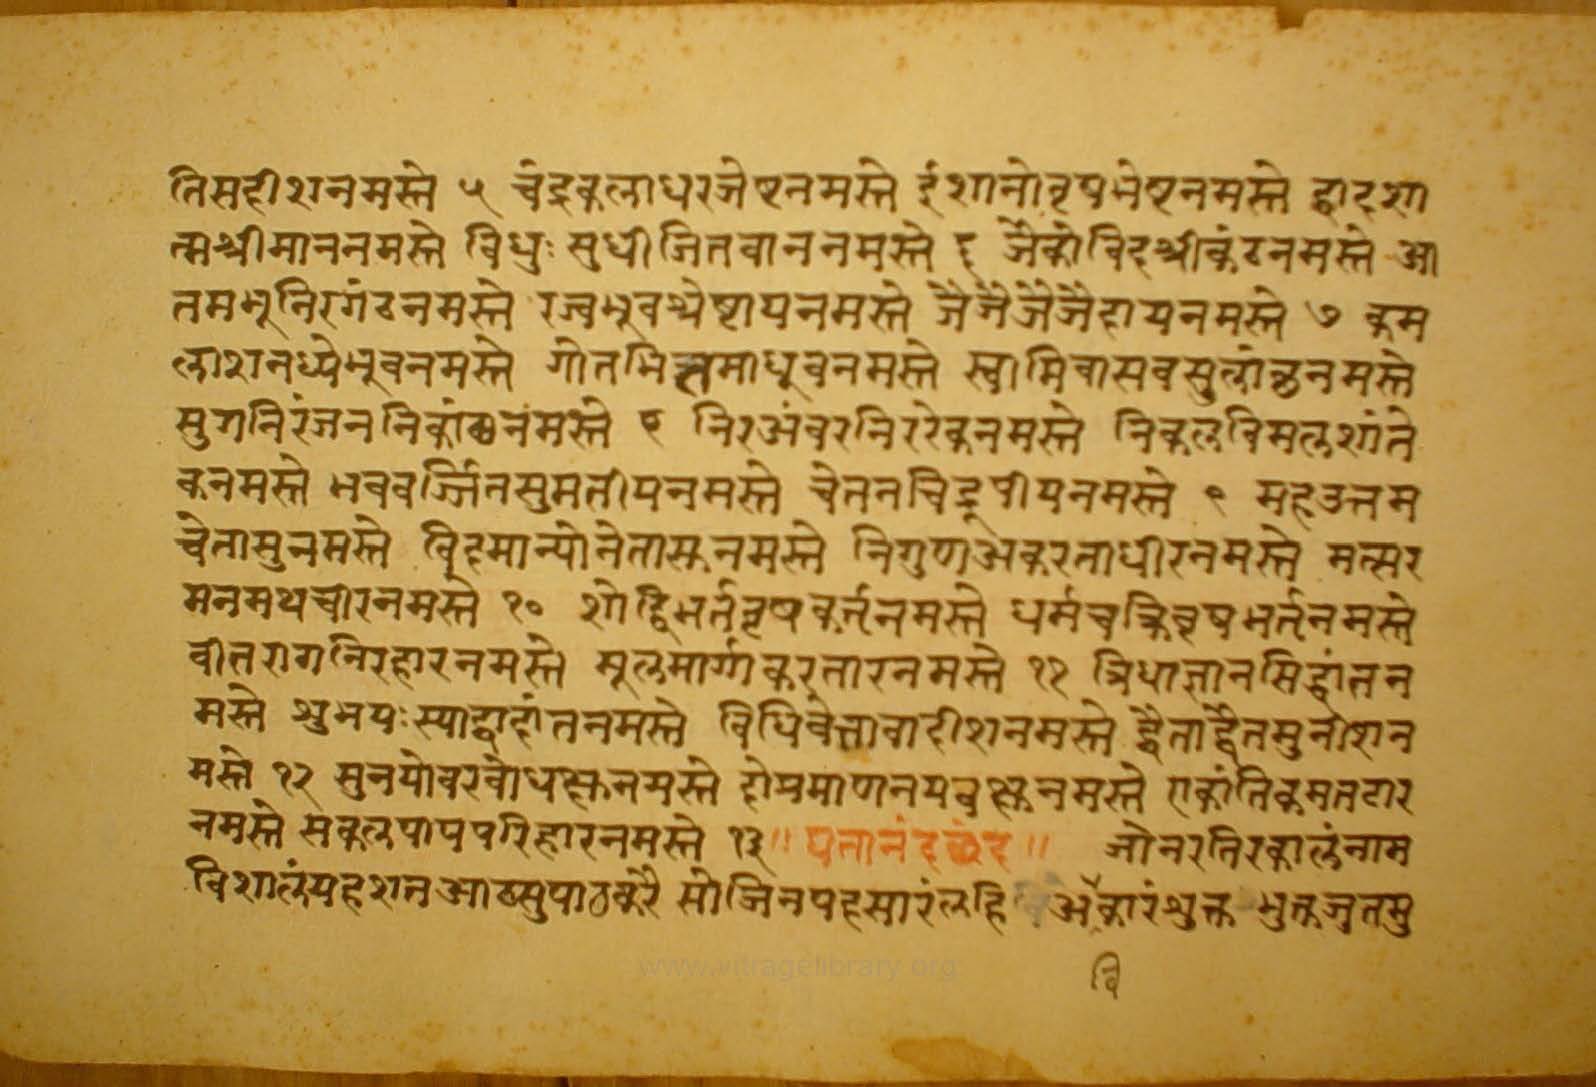 तिसहीशनमस्ते ५ चंद्रकलाधरजेष्टनमस्ते ईशानोवृषभेष्टनमस्ते द्वादशा
त्मश्रीमाननमस्ते विधुः सुधीजितवाननमस्ते ६ जैकोविदश्रीकंठनमस्ते आ
तमभूनिरगंठनमस्ते रज्वभूवश्रेष्टायनमस्ते जैजैजैजैहायनमस्ते ७ कम
लाशनध्येभूवनमस्ते गोतमित्तमाधूवनमस्ते स्वामिवासवसुलांछनमस्ते
सुगनिरंजननिकांछनंमस्ते ९ निरअंबरनिररेकनमस्ते निकलविमलशांते
कनमस्ते भववर्ज्जितसुमतीयनमस्ते चेतनचिद्रूपीयनमस्ते ९ महउत्तम
चेतासुनमस्ते विदमान्योनेतास्कनमस्ते निगुणअकरताधीरनमस्ते मत्सर
मनमथचीरनमस्ते १० शोद्विभर्तवृषकर्तृनमस्ते धर्मचक्रिवृषभर्तृनमस्ते
वीतरागनिरहारनमस्ते मूलमार्ग्गकरतारनमस्ते ११ त्रिधाज्ञानसिद्धांतन
मस्ते शुभयः स्याद्वादांतनमस्ते विधिवेत्तावादीशनमस्ते द्वैताद्वैतसुनीशन
मस्ते १२ सुनयोवरवोधस्कनमस्ते दोप्रमाणनयवुस्कनमस्ते एकांतिकमतटार
नमस्ते सकलपापपरिहारनमस्ते १३ ॥ घतानंदछंद ॥ जोनरतिरकालंनाम
विशालंयहशनआठसुपाठकरै सोजिनपदसारंलहि अॅकारंशुक्त भुक्तजुतमु
वि
www.vitragelibrary.org